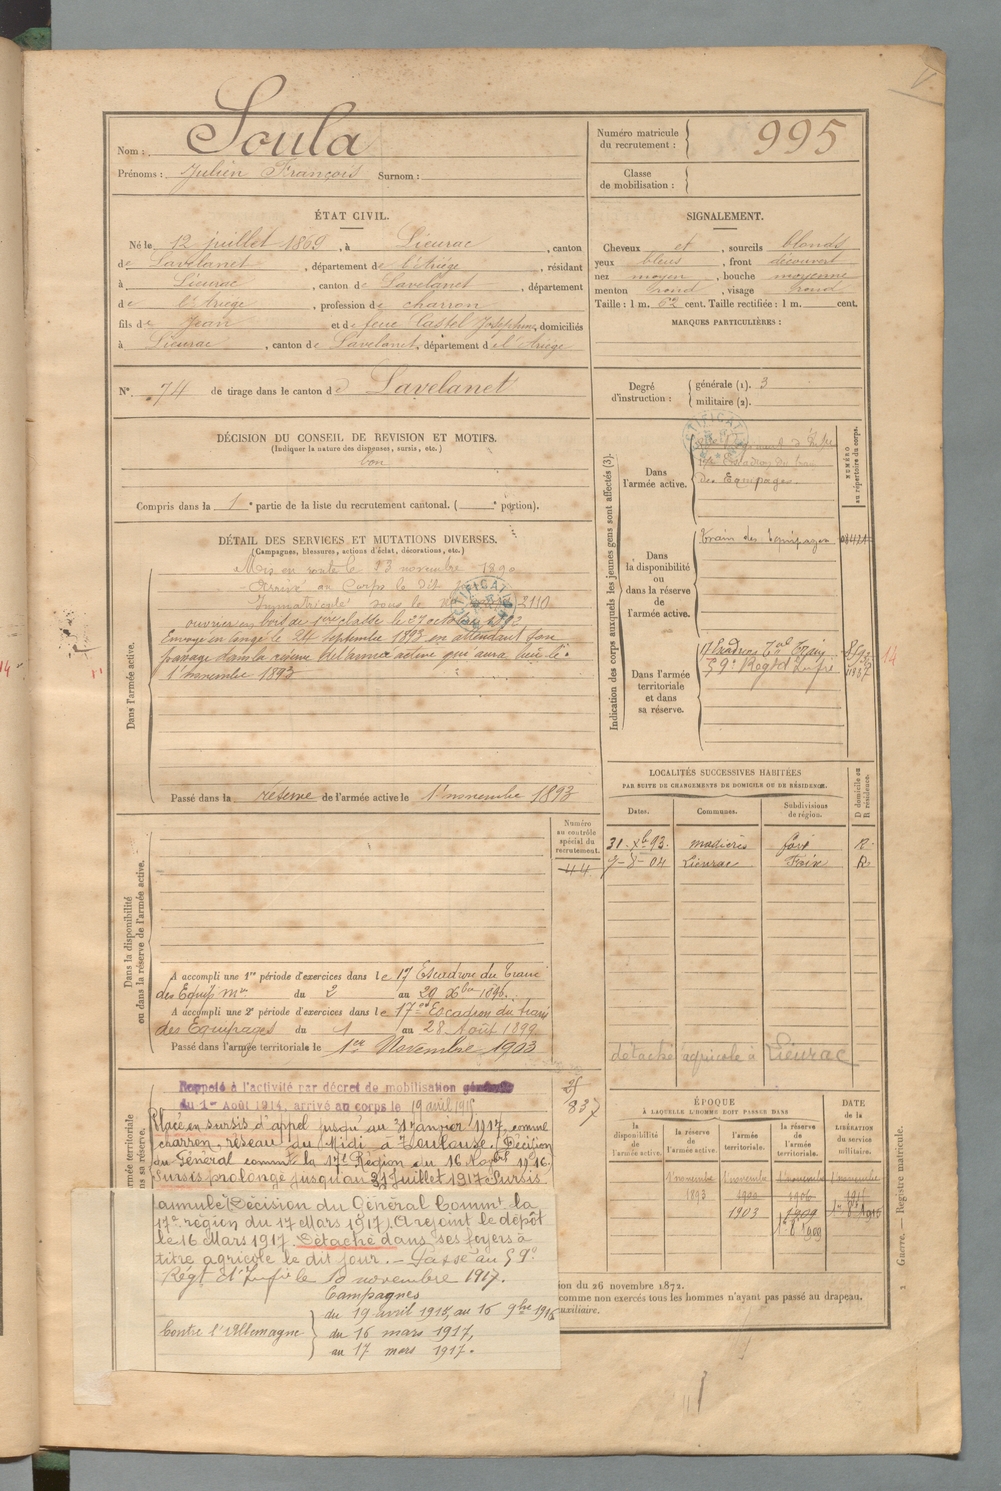 Nom : Soula
Prénoms : Julien François Surnom :
Numéro matricule du recrutement : 995
Classe de mobilisation :
ÉTAT CIVIL.
Né le 12 juillet 1869, à Lieurac, canton
de Lavelanet, département de l'Ariége, résidant
à Lieurac, canton de Lavelanet, département
de l'Ariege, profession de charron
fils de Jean et de feue Castel Joséphine, domiciliés
à Lieurac, canton de Lavelanet, département de l'Ariége
SIGNALEMENT.
Cheveux et, sourcils blonds
yeux bleus, front découvert
nez moyen, bouche moyenne
menton rond, visage rond
Taille : 1 m. cent. Taille rectifiée : 1 m. cent.
MARQUES PARTICULIÈRES :
N° 74 de tirage dans le canton de Lavelanet
Degré d'instruction : générale (1). 3
militaire (2).
DÉCISION DU CONSEIL DE REVISION ET MOTIFS.
(Indiquer la nature des dispenses, sursis, etc.)
bon
Compris dans la 1e partie de la liste du recrutement cantonal. ( e portion).
DÉTAIL DES SERVICES ET MUTATIONS DIVERSES.
(Campagnes, blessures, actions d'éclat, décorations, etc.)
Dans l'armée active.
Mis en route le 23 novembre 1890
Arrivé au Corps le dit
Immatriculé sous le n° 2110
ouvrier en bois de 1ère classe le 27 octobre 1892
Envoyé en congé le 24 septembre 1893 en attendant son
passage dans la réserve de l'armée active qui aura lieu le
1er novembre 1893
Passé dans la réserve de l'armée active le 1er novembre 1893
Indication des corps auxquels les jeunes gens sont affectés (3).
NUMÉRO au répertoire du corps.
Dans l'armée active.
des Equipages.
Dans la disponibilité ou dans la réserve de l'armée active.
Train des Equipages
Dans l'armée territoriale et dans sa réserve.
17 Escadron Tal Train
59e Régt d'Infie
14
LOCALITÉS SUCCESSIVES HABITÉES
PAR SUITE DE CHANGEMENTS DE DOMICILE OU DE RÉSIDENCE.
D domicile ou R résidence.
Dates. Communes. Subdivisions de région.
31 Xbre 93. madières foix R.
7-8-04 Lieurac Foix R
détaché agricole à Lieurac
Dans la disponibilité ou dans la réserve de l'armée active.
Numéro au contrôle spécial du recrutement.
44
A accompli une 1re période d'exercices dans le 17 Escadron du Train
des Equip mres du 2 au 29 Xbre 1896.
A accompli une 2e période d'exercices dans le 17e Escadron du train
des Equipages du 1 au 28 Août 1899
Passé dans l'armée territoriale le 1er Novembre 1903
Rappelé à l'activité par décret de mobilisation générale
du 1er Août 1914, arrivé au corps le 19 avril 1915
837
Placé en sursis d'appel jusqu'au 31 janvier 1917, comme
charron, réseau du Midi à Toulouse. Décision
du Général commt la 17e Région du 16 Novbre 1916.
Sursis prolongé jusqu'au 31 Juillet 1917 Sursis
annulé (Décision du Général Commt la
17e région du 17 Mars 1917) A rejoint le dépôt
le 16 Mars 1917. Détaché dans ses foyers à
titre agricole le dit jour. — Passé au 59e
Régt d'Infie le 10 novembre 1917.
Campagnes
Contre l'Allemagne
du 19 avril 1915, au 16 9bre 1916
du 16 mars 1917,
au 17 mars 1917.
ÉPOQUE
À LAQUELLE L'HOMME DOIT PASSER DANS
DATE de la LIBÉRATION du service militaire.
la disponibilité de l'armée active.
la réserve de l'armée active.
l'armée territoriale.
la réserve de l'armée territoriale.
1 novembre 1893
1 novembre 1903
1909
ion du 26 novembre 1872.
comme non exercés tous les hommes n'ayant pas passé au drapeau,
uxiliaire.
1 Guerre. — Registre matricule.